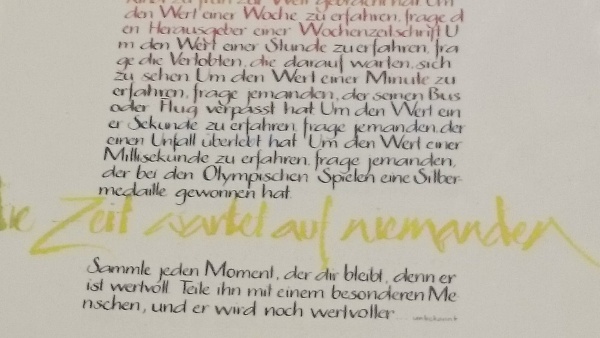 den Wert einer Woche zu erfahren, frage d
en Herausgeber einer Wochenzeitschrift U
m den Wert einer Stunde zu erfahren, fra
ge die Verlobten, die darauf warten, sich
zu sehen Um den Wert einer Minute zu
erfahren, frage jemanden, der seinen Bus
oder Flug verpasst hat Um den Wert ein
er Sekunde zu erfahren, frage jemanden, der
einen Unfall überlebt hat Um den Wert einer
Millisekunde zu erfahren, frage jemanden,
der bei den Olympischen Spielen eine Silber-
medaille gewonnen hat.
Die Zeit wartet auf niemanden
Sammle jeden Moment, der dir bleibt, denn er
ist wertvoll Teile ihn mit einem besonderen Me
nschen, und er wird noch wertvoller... unbekannt